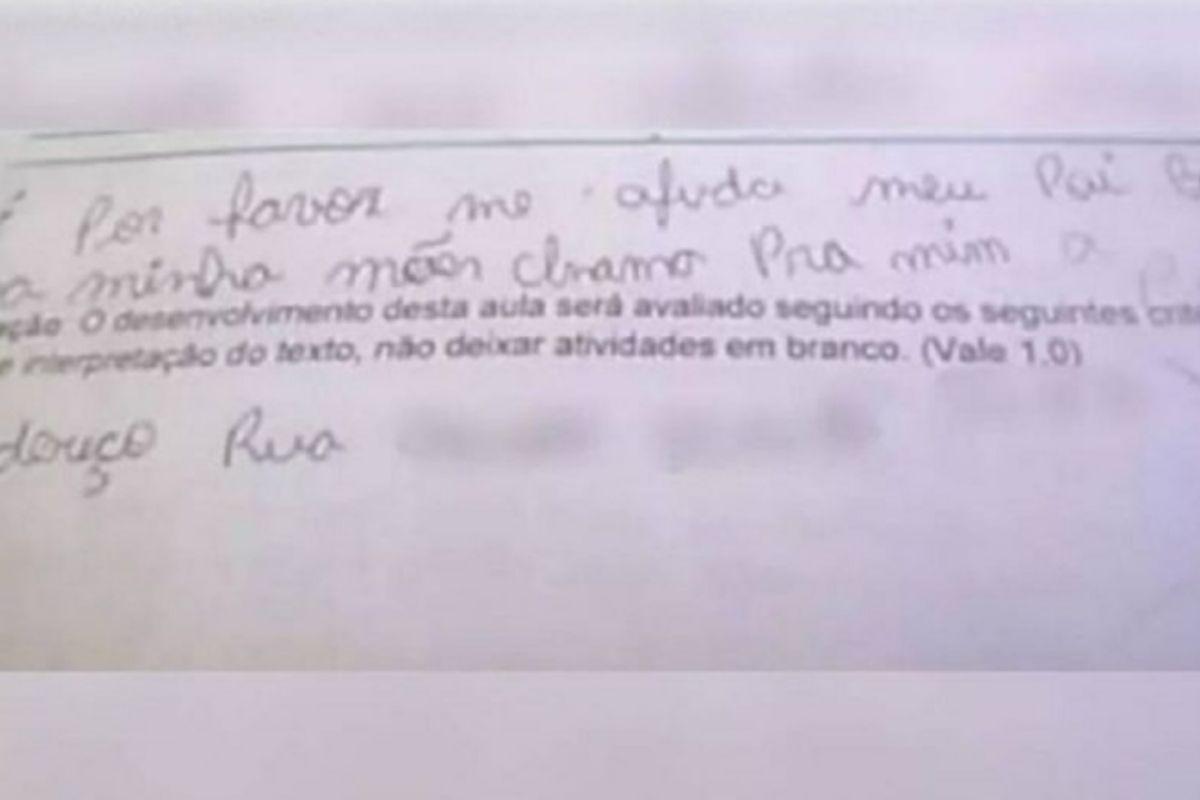 Por favor me ajuda meu Pai
a minha mãe chamo Pra mim a
ção O desenvolvimento desta aula será avaliado seguindo os seguintes crité
e interpretação do texto, não deixar atividades em branco. (Vale 1.0)
douço Rua